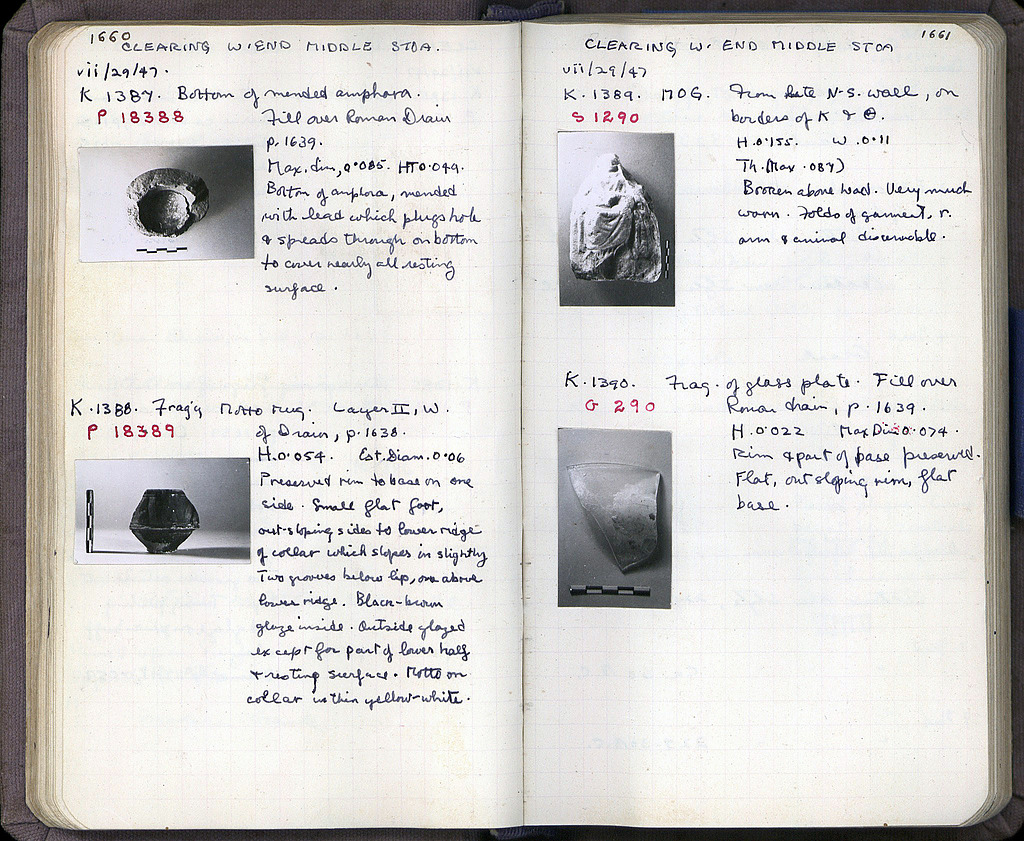 1660
CLEARING W. END MIDDLE STOA.
vii/29/47.
K 1387. Bottom of mended amphora.
P 18388 Fill over Roman Drain
p. 1639.
Max. dim, 0.085. HT 0.049.
Bottom of amphora, mended
with lead which plugs hole
& spreads through on bottom
to cover nearly all resting
surface.
K.1388. Frag'y Motto mug. Layer II, W.
P 18389 of Drain, p. 1638.
H.0.054. Est. Diam. 0.06
Preserved rim to base on one
side. Small flat foot,
out-sloping sides to lower ridge
of collar which slopes in slightly
Two grooves below lip, one above
lower ridge. Black-brown
glaze inside. Outside glazed
except for part of lower half
& resting surface. Motto on
collar in thin yellow-white.
1661
CLEARING W. END MIDDLE STOA
vii/29/47
K. 1389. MOG. From late N-S. wall, on
S 1290 borders of K & Θ.
H.0.155. W.0.11
Th. (Max .087)
Broken above head. Very much
worn. Folds of garment, r.
arm & animal discernable.
K.1390. Frag. of glass plate. Fill over
G 290 Roman drain, p. 1639.
H.0.022 Max Dim 0.074.
Rim & part of base preserved.
Flat, out sloping rim, flat
base.